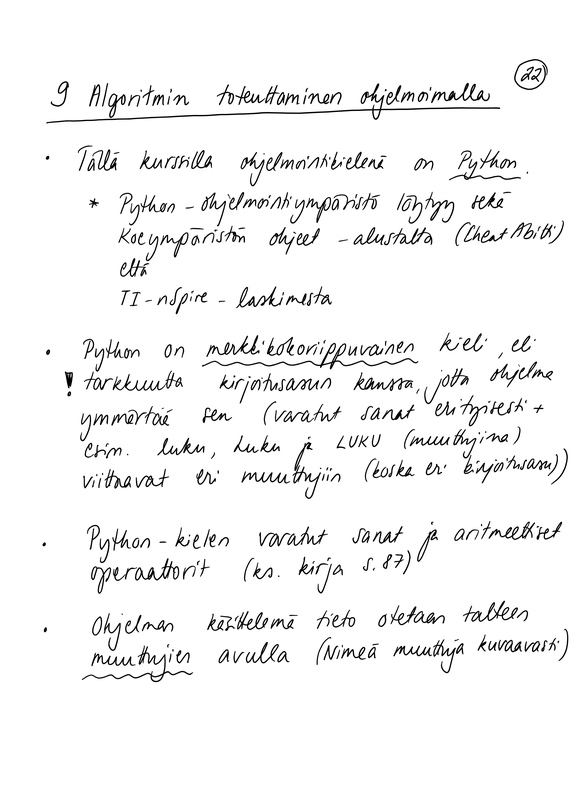 22
9 Algoritmin toteuttaminen ohjelmoimalla
• Tällä kurssilla ohjelmointikielenä on Python.
* Python - ohjelmointiympäristö löytyy sekä
Koeympäristön ohjeet - alustalta (Cheat Abitti)
että
TI-nSpire - laskimesta
• Python on merkkikokoriippuvainen kieli, eli
! tarkkuutta kirjoitusasun kanssa, jotta ohjelma
ymmärtää sen (varatut sanat erityisesti +
esim. luku, Luku ja LUKU (muuttujina)
viittaavat eri muuttujiin (koska eri kirjoitusasu))
• Python-kielen varatut sanat ja aritmeettiset
operaattorit (ks. kirja s.87)
• Ohjelman käsittelemä tieto otetaan talteen
muuttujien avulla (Nimeä muuttuja kuvaavasti)